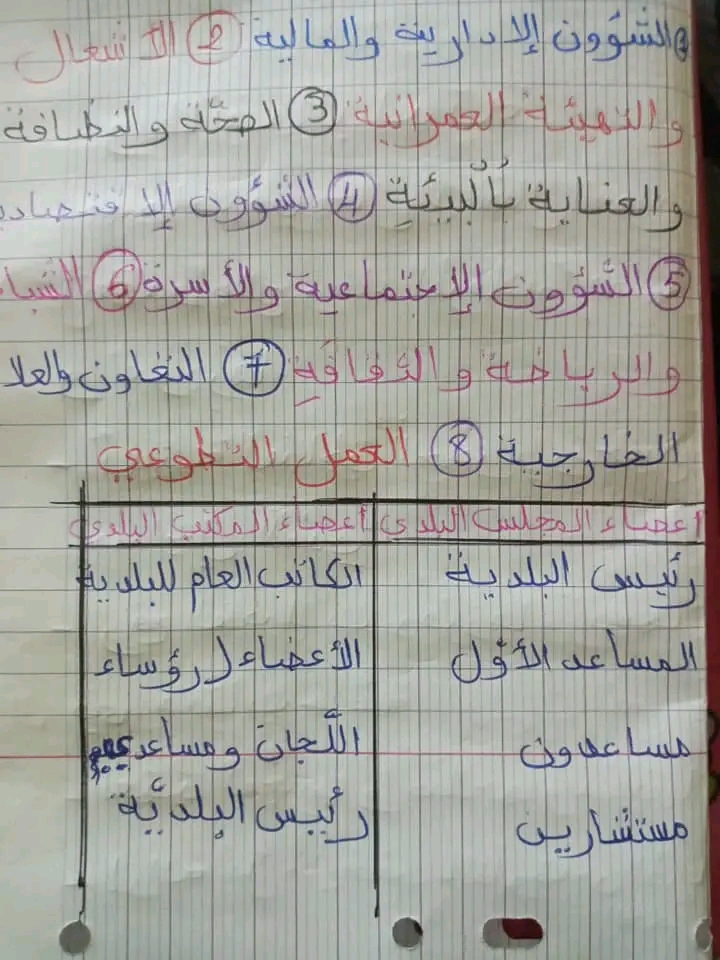 ① الشؤون الإدارية والمالية ② الأشغال
والتهيئة العمرانية ③ الصحّة والنظافة
والعناية بالبيئة ④ الشؤون الإقتصادي
⑤ الشؤون الإجتماعية والأسرة ⑥ الشبا
والرياضة والثقافة ⑦ التعاون والعلا
الخارجية ⑧ العمل التطوعي
أعضاء المجلس البلدي أعضاء المكتب البلدي
رئيس البلدية الكاتب العام للبلدية
المساعد الأوّل الأعضاء (رؤساء
مساعدون اللّجان ومساعدي
مستشارين رئيس البلديّة